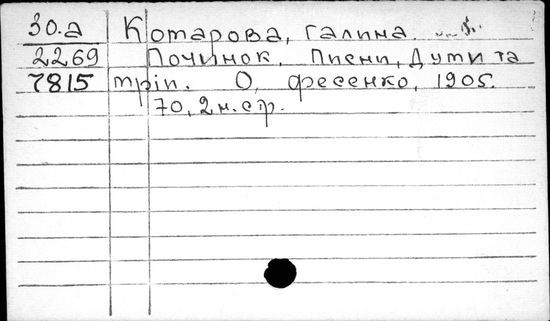 30.а Котарова, Галина.
2269 Починок. Писни, Думи та
7815 мріп. О, Фесенко, 1905.
70, 2 н. стр.